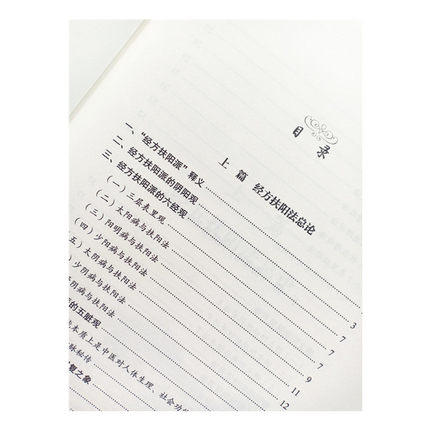 目录
上篇 经方扶阳法总论
一、“经方扶阳派”释义
二、经方扶阳派的阴阳观 3
三、经方扶阳派的六经观 7
(一)三层表里观 7
(二)太阳病与扶阳法 7
(三)阳明病与扶阳法 9
(四)少阳病与扶阳法 11
五)太阴病与扶阳法 12
)少阴病与扶阳法
阴病与扶阳法
的五脏观
本质上是中医对人体生理、社会功
脉秘传
复之象